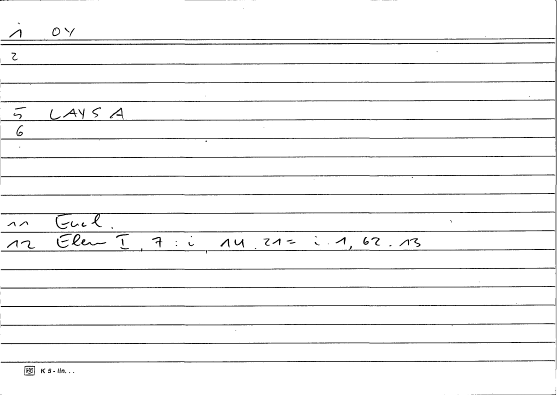 i OY
2
5 LAYSA
6
11 Eucl.
12 Elem I, 7 : i, 14. 21 = i. 1, 62. 13
K 5 - lin. . .